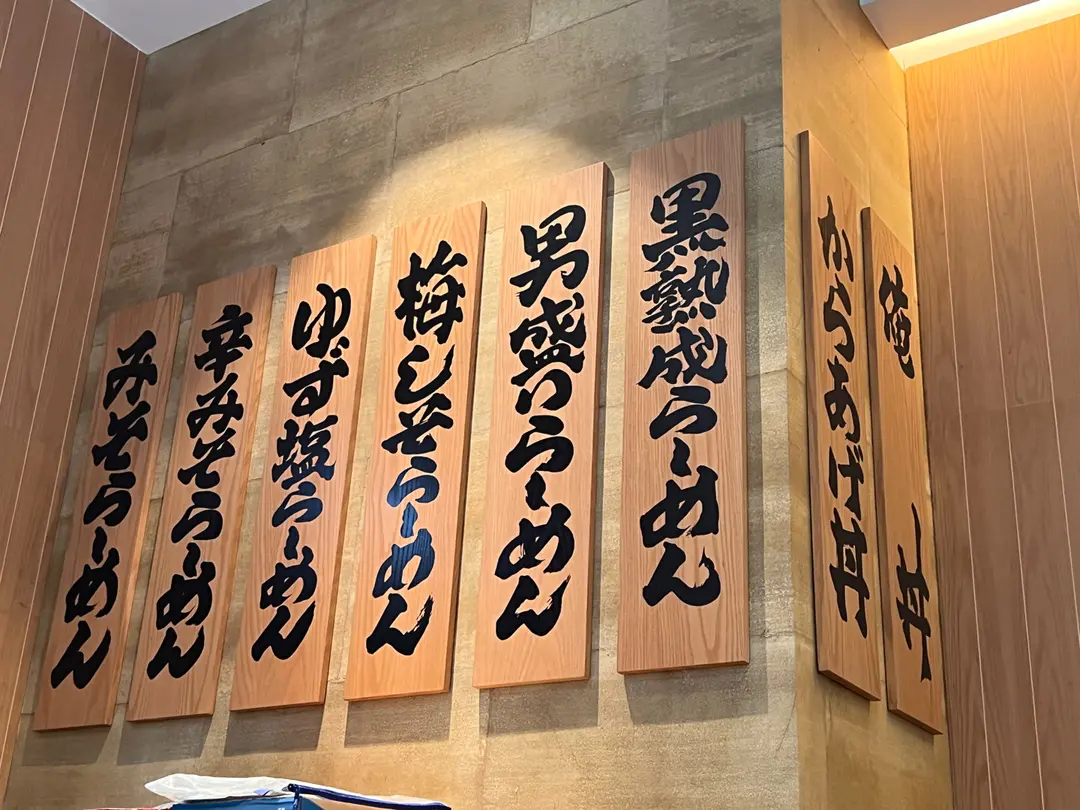 俺丼
からあげ丼
黒熟成らーめん
男盛りらーめん
梅しそらーめん
ゆず塩らーめん
辛みそらーめん
みそらーめん